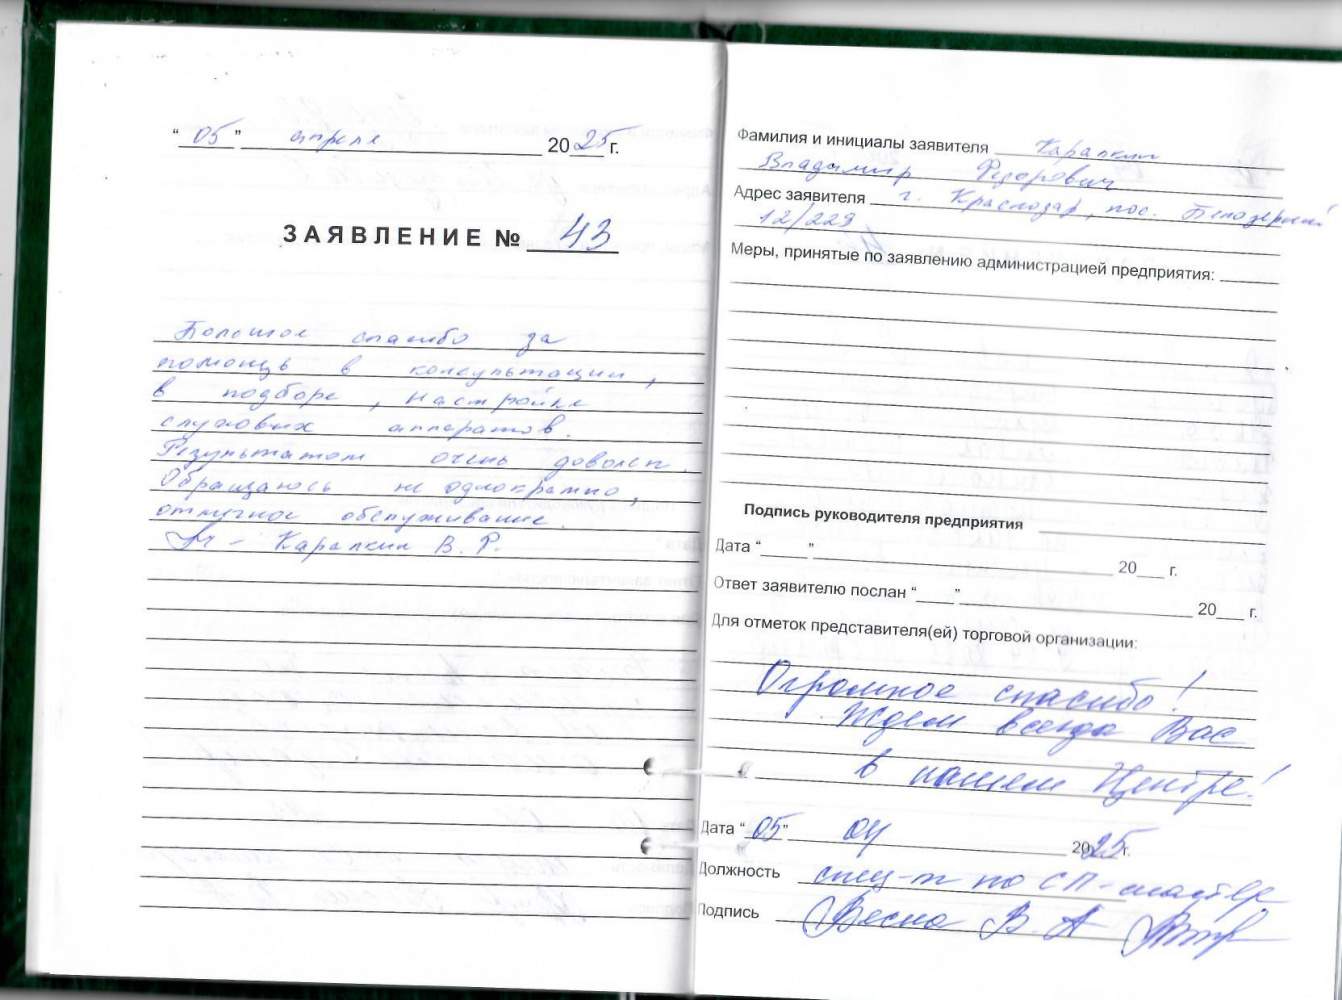 “05” апреля 2025 г.
ЗАЯВЛЕНИЕ № 43
Большое спасибо за
помощь в консультации,
в подборе, настройке
слуховых аппаратов.
Результатом очень доволен.
Обращаюсь не однократно,
отличное обслуживание.
Карапкин В. Ф.
Фамилия и инициалы заявителя Карапкин
Владимир Федорович
Адрес заявителя г. Краснодар, пос. Белозерный
12/229
Меры, принятые по заявлению администрацией предприятия:
Подпись руководителя предприятия
Дата “ ” 20 г.
Ответ заявителю послан “ ” 20 г.
Для отметок представителя(ей) торговой организации:
Огромное спасибо!
Ждем всегда Вас
в нашем Центре!
Дата “05” 04 2025 г.
Должность спец-т по СП-мастер
Подпись Весна В. А